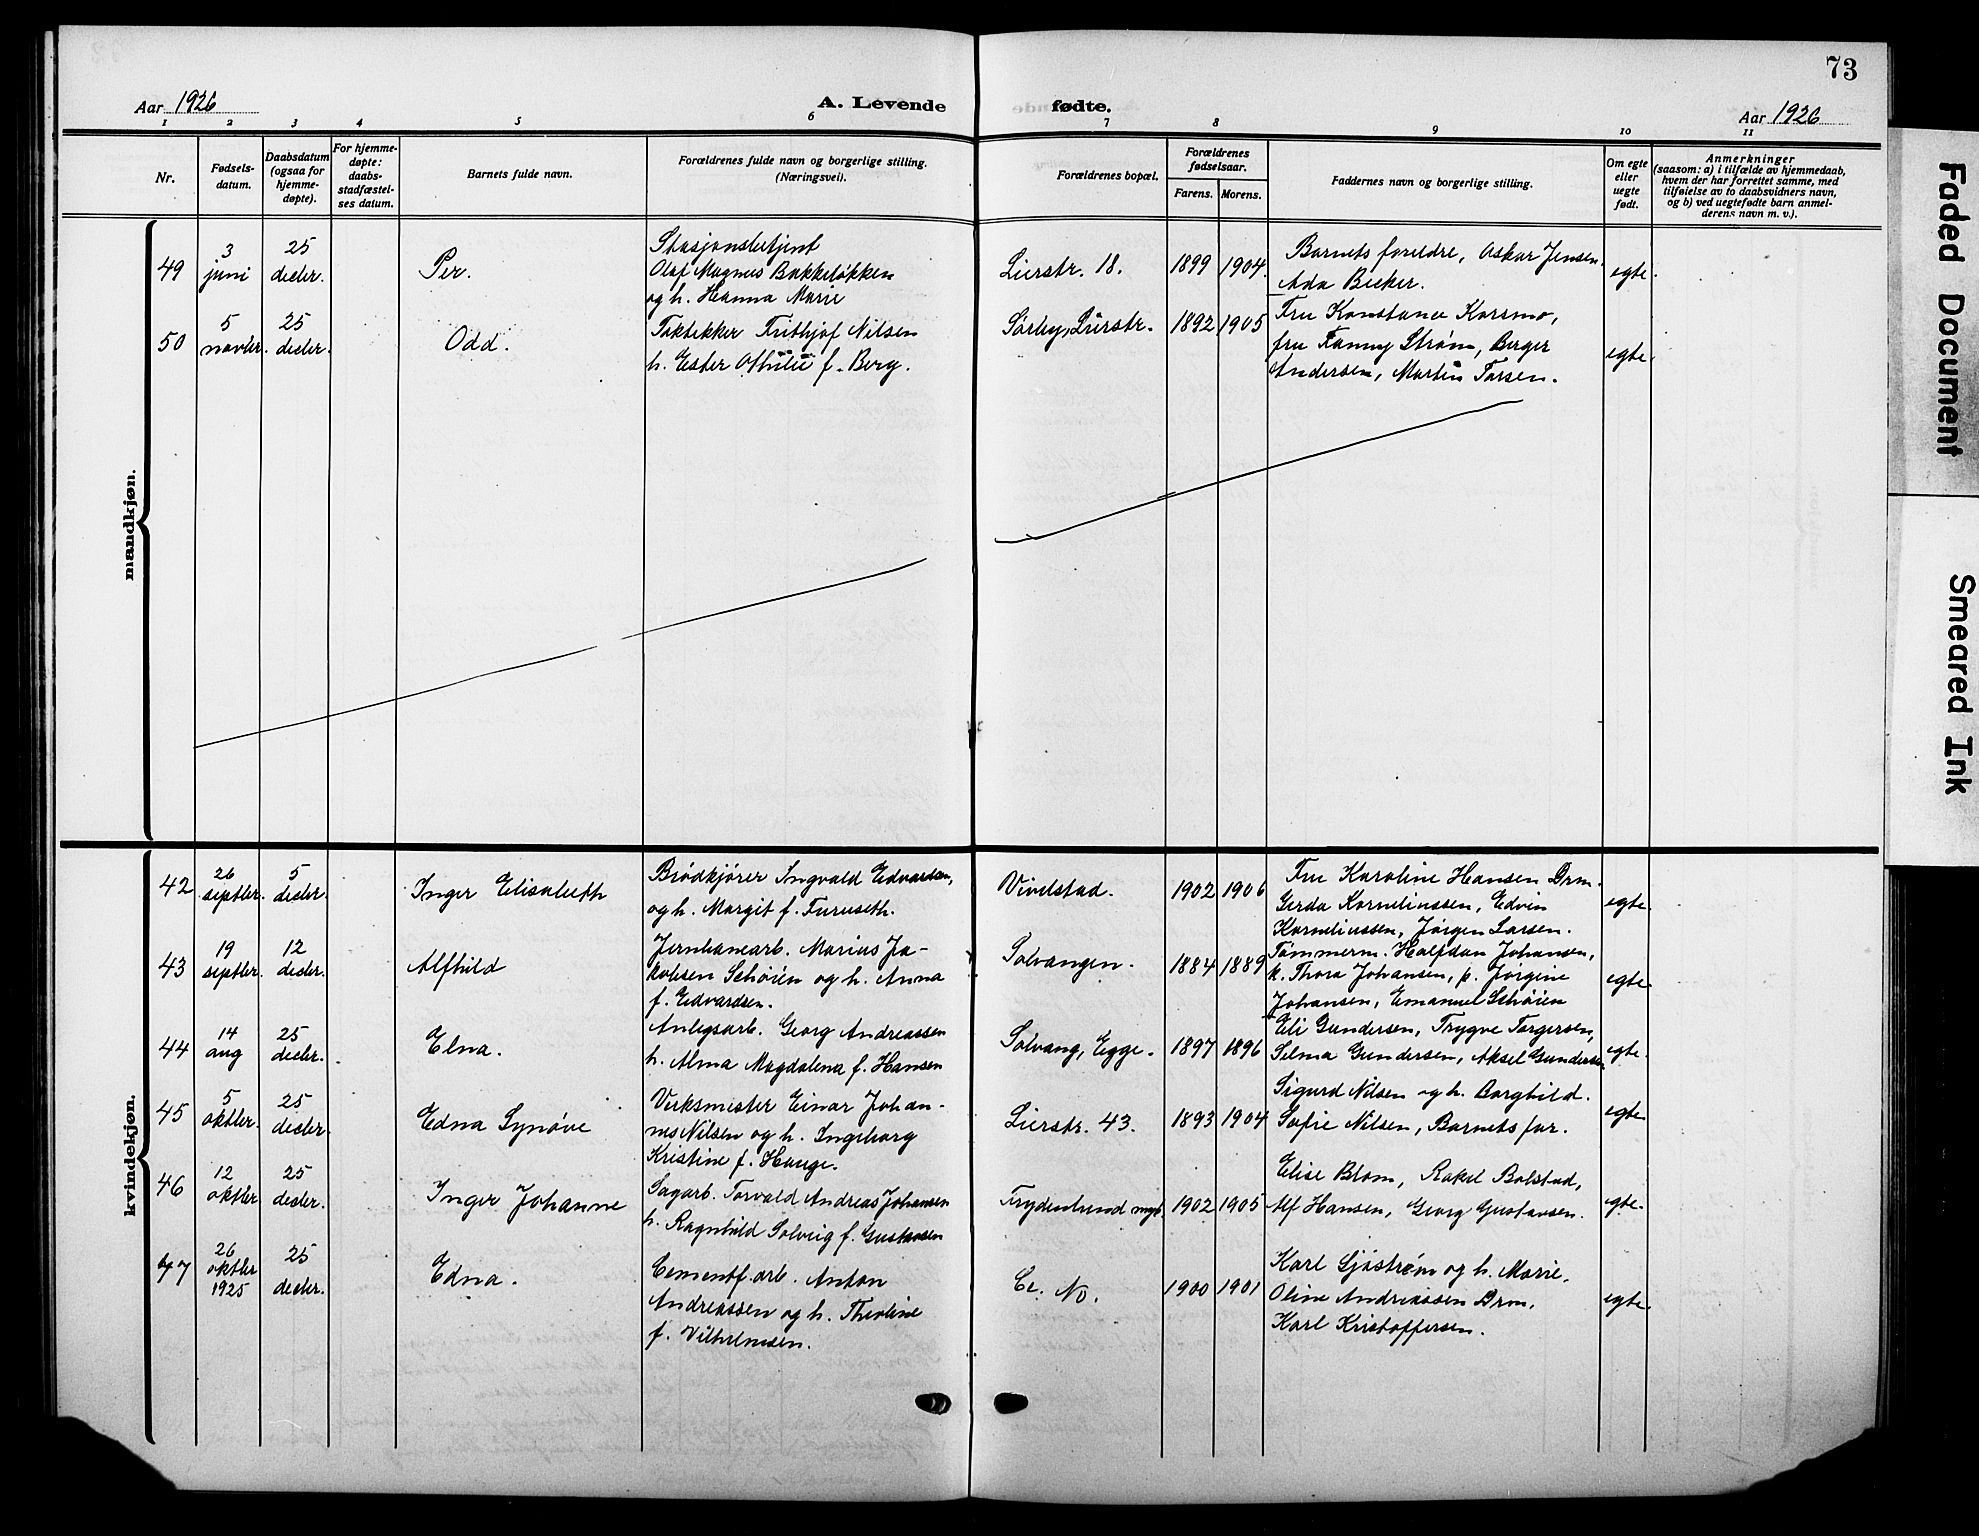 73
Aar 1926
A. Levende fødte.
Aar 1926
1 2 3 4 5 6 7 8 9 10 11
Nr.
Fødsels-
datum.
Daabsdatum
(ogsaa for
hjemme-
døpte).
For hjemme-
døpte:
daabs-
stadfæstel-
ses datum.
Barnets fulde navn.
Forældrenes fulde navn og borgerlige stilling.
(Næringsvei).
Forældrenes bopæl.
Forældrenes
fødselsaar.
Farens. Morens.
Faddernes navn og borgerlige stilling.
Om egte
eller
uegte
født.
Anmerkninger
(saasom: a) i tilfælde av hjemmedaab,
hvem der har forrettet samme, med
tilføielse av to daabsvidners navn,
og b) ved uegtefødte barn anmel-
derens navn m. v.).
mandkjøn.
49
3
juni
25
decbr.
Per.
Stasjonsbetjent
Olaf Magnus Bakkeløkken
og h. Hanna Marie
Lierstr. 18.
1899 1904.
Barnets foreldre, Oskar Jensen,
Ada Becker.
egte.
50
5
novbr.
25
decbr.
Odd.
Taktekker Frithjof Nilsen
h. Ester Othilie f. Berg.
Sørby, Lierstr.
1892 1905
Fru Konstance Korsmo,
fru Fanny Strøm, Berger
Andersen, Martin Tørsen.
egte.
kvindekjøn.
42
26
septbr.
5
decbr.
Inger Elisabeth
Brødkjører Ingvald Edvardsen,
og h. Margit f. Furuseth.
Vivelstad.
1902 1906
Fru Karoline Hansen Drm.
Gerda Korneliussen, Edvin
Korneliussen, Jørgen Larsen.
egte.
43
19
septbr.
12
decbr.
Alfhild
Jernbanearb. Marius Ja-
kobsen Schøien og h. Anna
f. Edvardsen.
Solvangen.
1884 1889
Tømmerm. Halfdan Johansen,
k. Thora Johansen, p. Jørgine
Johansen, Emanuel Schøien
egte.
44
14
aug
25
decbr.
Elna.
Anlegsarb. Georg Andreassen
h. Alma Magdalena f. Hansen
Solvang, Egge.
1897 1896
Eli Gundersen, Trygve Torgersen,
Selma Gundersen, Aksel Gundersen
egte.
45
5
oktbr.
25
decbr.
Edna Synøve
Verksmester Einar Johan-
nes Nilsen og h. Ingeborg
Kristine f. Hauge.
Lierstr. 43.
1893 1904
Sigurd Nilsen og h. Borghild.
Sofie Nilsen, Barnets far.
egte
46
12
oktbr
25
decbr.
Inger Johanne
Sagarb. Torvald Andreas Johansen
h. Ragnhild Solveig f. Gustavsen
Frydenlund
1902 1905
Elise Blom, Rakel Bolstad,
Alf Hansen, Georg Gustavsen.
egte.
47
26
oktbr
1925
25
decbr.
Edna.
Cementf. arb. Anton
Andreassen og h. Theoline
f. Vilhelmsen.
No.
1900 1901
Karl Sjøstrøm og h. Marie.
Oline Andreassen Drm.
Karl Kristoffersen.
egte.
Faded Document
Smeared Ink